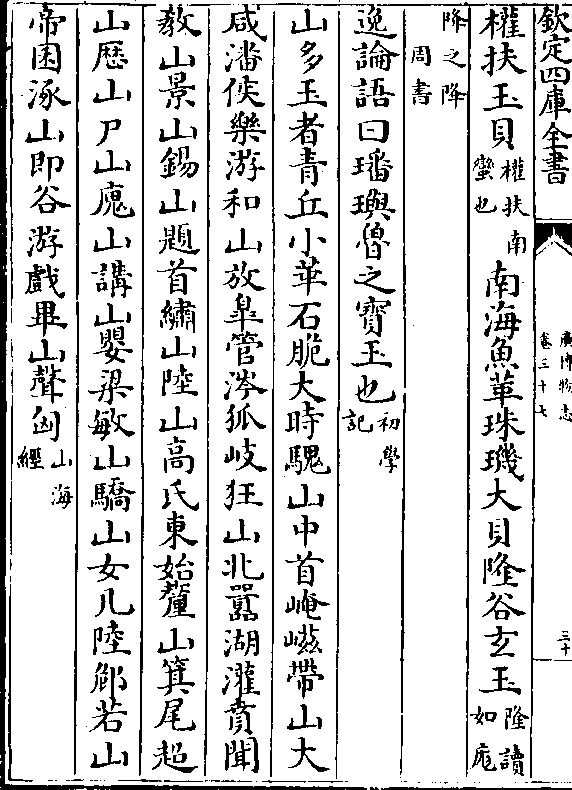 欽定四庫全書
廣博物志
卷三十七
三十
權扶玉貝權扶南蠻也南海魚革珠璣大貝隆谷玄玉隆讀如厖
降之降周書
逸論語曰璠璵魯之寳玉也初學記
山多玉者青丘小華石脆大時騩山中首崦嵫帶山大
咸潘侯樂游和山放臯管涔狐岐狂山北嚻湖灌賁聞
敎山景山錫山題首繡山陸山高氏東始釐山箕尾超
山歴山尸山廆山講山嬰梁敏山驕山女几陸䣙若山
帝囷涿山即谷游戲畢山聲匈山海經